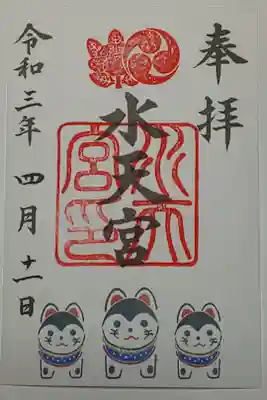 奉拝
水天宮
水天宮印
令和三年 四月 十一日